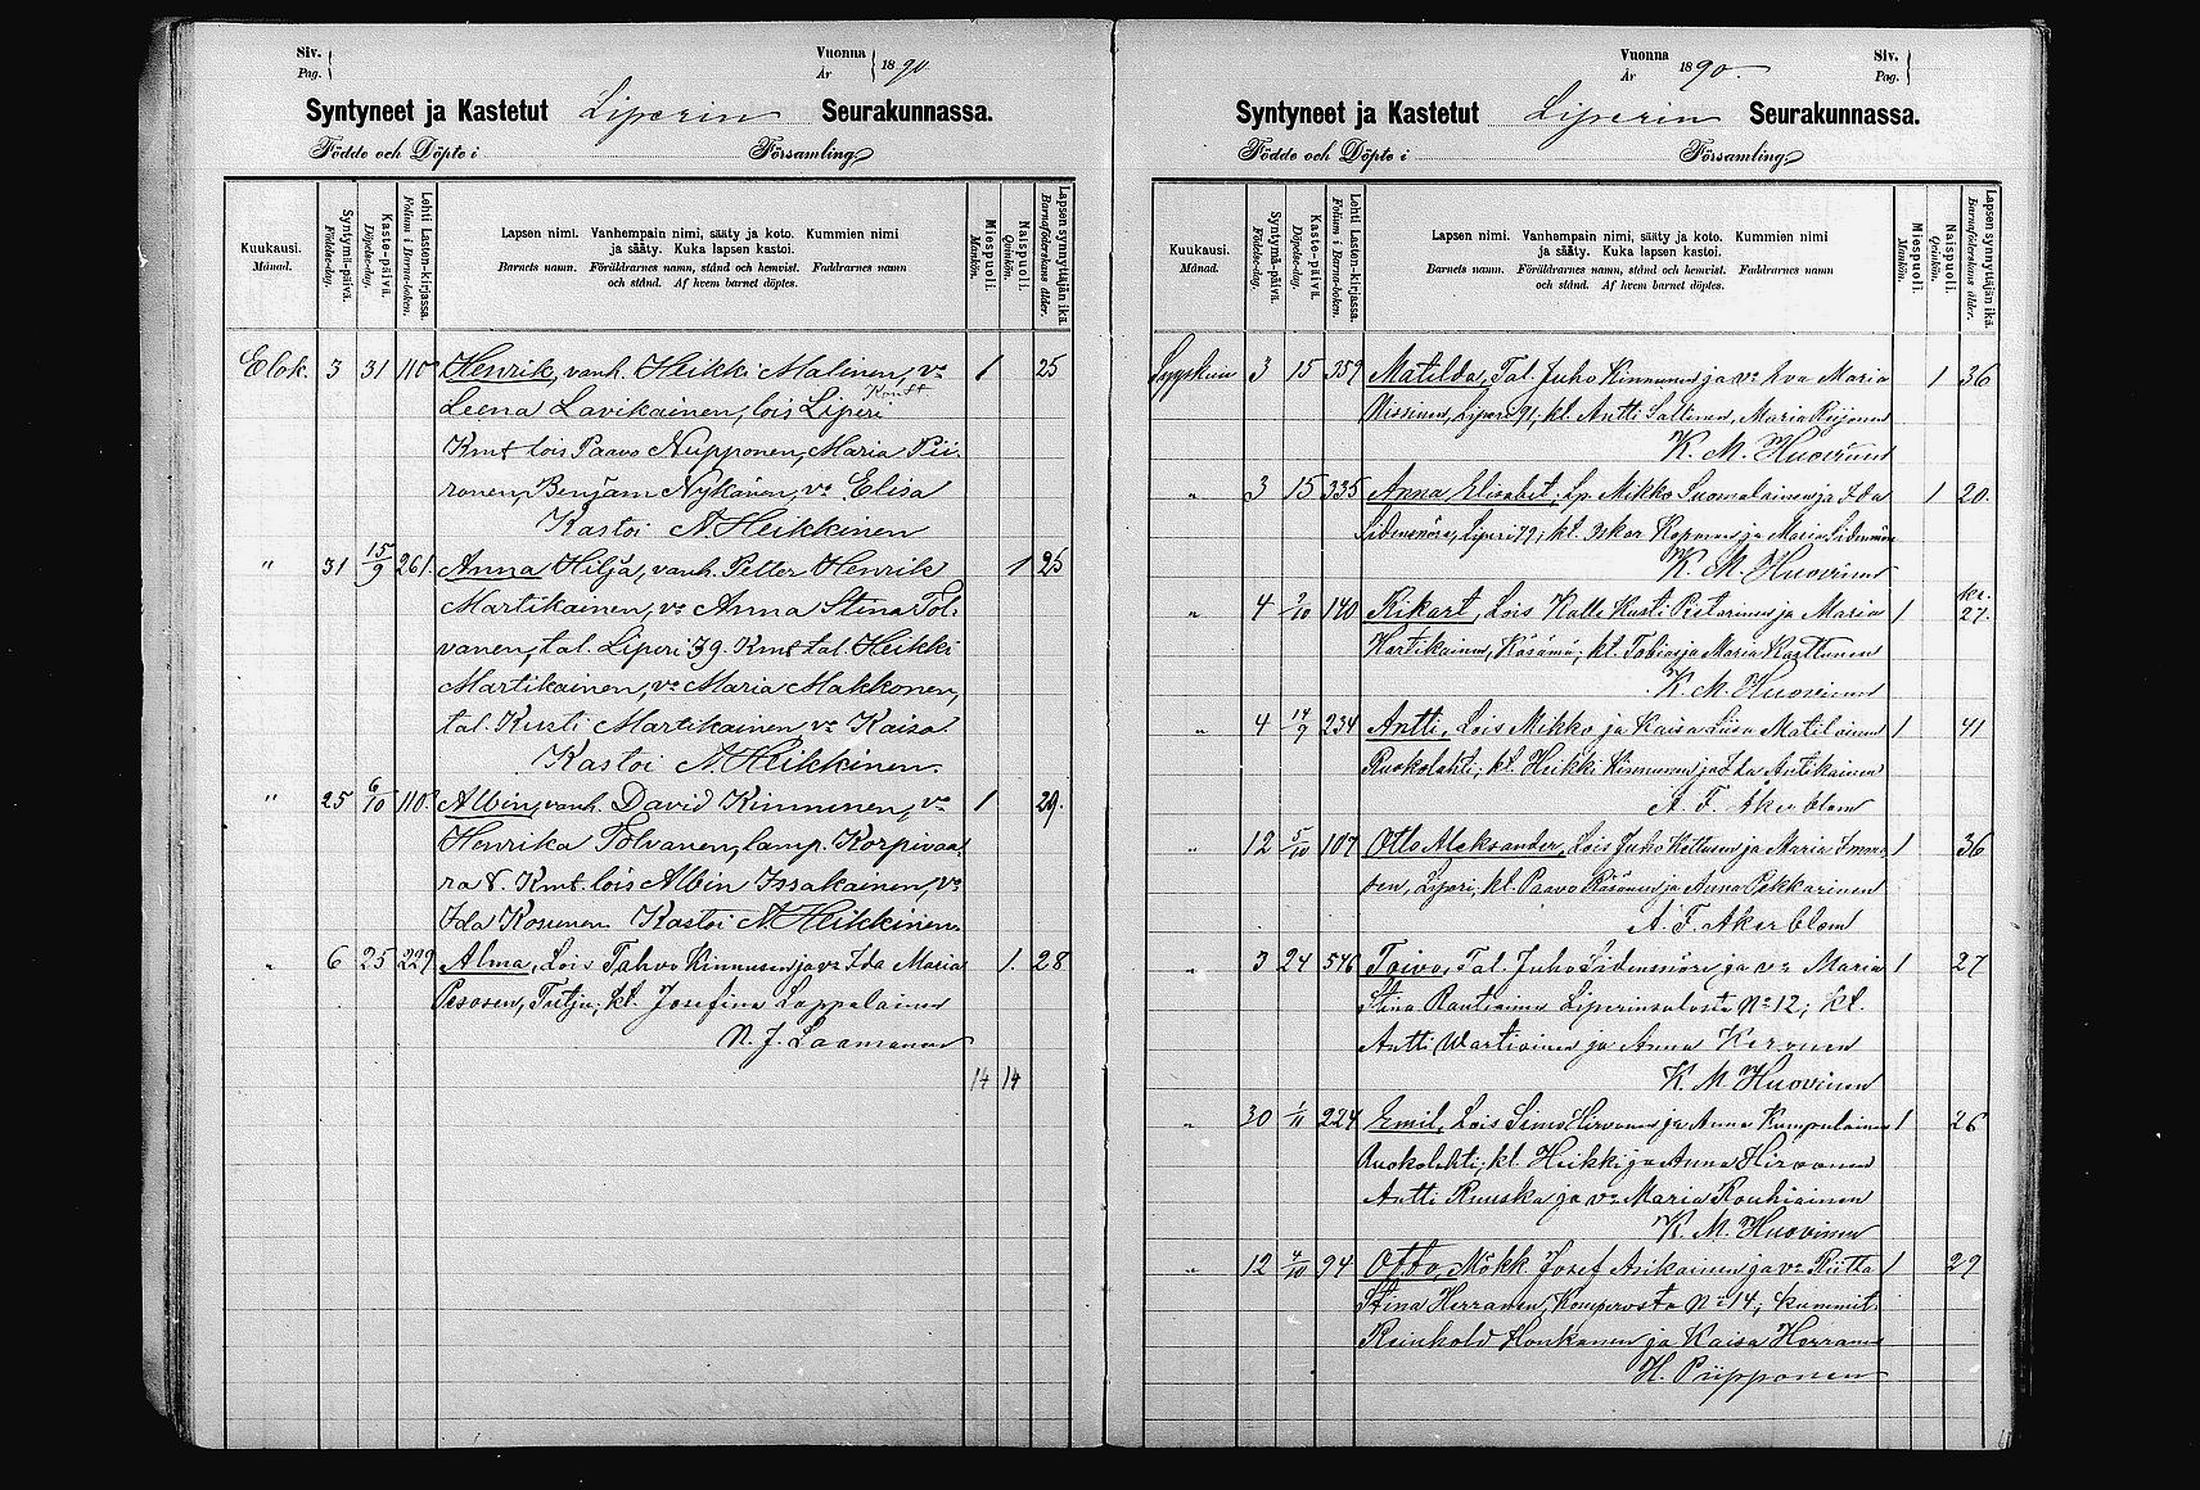 Siv.
Pag.
Vuonna
År
1890.
Syntyneet ja Kastetut Liperin Seurakunnassa.
Födde och Döpte i Församling
Kuukausi.
Månad.
Syntymä-päivä.
Födelse-dag.
Kaste-päivä.
Döpelse-dag.
Lehti Lasten-kirjassa.
Folium i Barna-boken.
Lapsen nimi. Vanhempain nimi, sääty ja koto. Kummien nimi
ja sääty. Kuka lapsen kastoi.
Barnets namn. Föräldrarnes namn, stånd och hemvist. Faddrarnes namn
och stånd. Af hvem barnet döptes.
Miespuoli.
Mankön.
Naispuoli.
Qvinkön.
Lapsen synnyttäjän ikä.
Barnaföderskans ålder.
Elok. 3 31 110 Henrik, vanh. Heikki Malinen, vo 1 25
Kontt
Leena Lavikainen, lois Liperi
Kmt lois Paavo Nupponen, Maria Pii-
ronen, Benjam Nykänen, vo Elisa
Kastoi A. Heikkinen
" 31 15/9 261. Anna Hilja, vanh. Petter Henrik 1 25
Martikainen, vo Anna Stina Tol-
vanen, tal. Liperi 39. Kmt tal. Heikki
Martikainen, vo Maria Makkonen,
tal. Kusti Martikainen vo Kaisa.
Kastoi A. Heikkinen.
" 25 6/10 110. Albin, vanh. David Kinnunen, vo 1 29.
Henrika Tolvanen, lamp. Korpivaa-
ra 8. Kmt. lois Albin Issakainen, vo
Ida Kosunen. Kastoi A. Heikkinen.
" 6 25 229 Alma, Lois Tahvo Kinnunen ja vo Ida Maria 1. 28
Pesosen, Tutju; kt. Josefina Lappalainen
N. J. Laamanen
14 14
Vuonna
År
1890.
Siv.
Pag.
Syntyneet ja Kastetut Liperin Seurakunnassa.
Födde och Döpte i Församling
Kuukausi.
Månad.
Syntymä-päivä.
Födelse-dag.
Kaste-päivä.
Döpelse-dag.
Lehti Lasten-kirjassa.
Folium i Barna-boken.
Lapsen nimi. Vanhempain nimi, sääty ja koto. Kummien nimi
ja sääty. Kuka lapsen kastoi.
Barnets namn. Föräldrarnes namn, stånd och hemvist. Faddrarnes namn
och stånd. Af hvem barnet döptes.
Miespuoli.
Mankön.
Naispuoli.
Qvinkön.
Lapsen synnyttäjän ikä.
Barnaföderskans ålder.
Syyskuu 3 15 359 Matilda, Tal. Juho Kinnunen ja vo Eva Maria 1 36
Nissinen, Liperi 91; kt. Antti Sallinen, Maria Reijonen
K. M. Huovinen
" 3 15 335 Anna Elisabet, Lp. Mikko Suomalainen ja Ida 1 20.
Sidensnöre, Liperi 79; kt. Oskar Kaponen ja Maria Sidensnöre
K. M. Huovinen
" 4 9/10 140 Rikart, Lois Kalle Kusti Pietarinen ja Maria 1 kr. 27.
Hartikainen, Käsämä; kt. Tobias ja Maria Karttunen
K. M. Huovinen
" 4 14/9 234 Antti, Lois Mikko ja Kaisa Liisa Matilainen 1 41
Ruokolahti; kt. Heikki Kinnunen ja Ida Antikainen
A. F. Akerblom
" 12 5/10 107 Otto Aleksander, Lois Juho Kettunen ja Maria Immo- 1 36
sen, Liperi, kt. Paavo Räsänen ja Anna Pekkarinen
A. F. Akerblom
" 3 24 546 Toivo, Tal. Juho Sidensnöre ja vo Maria 1 27
Stina Rautiainen Liperinsalosta No 12; kt.
Antti Wartiainen ja Anna Kervinen
K. M. Huovinen
" 30 1/11 224 Emil, Lois Simo Hirvonen ja Anna Kumpulainen 1 26
Ruokolahti; kt. Heikki ja Anna Hirvonen
Antti Ruuska ja vo Maria Rouhiainen
K. M. Huovinen
" 12 4/10 94 Otto, Mökk. Josef Asikainen ja vo Riitta 1 29
Stina Herranen, Komperosta No 14; kummit.
Reinhold Honkanen ja Kaisa Herranen
H. Piipponen